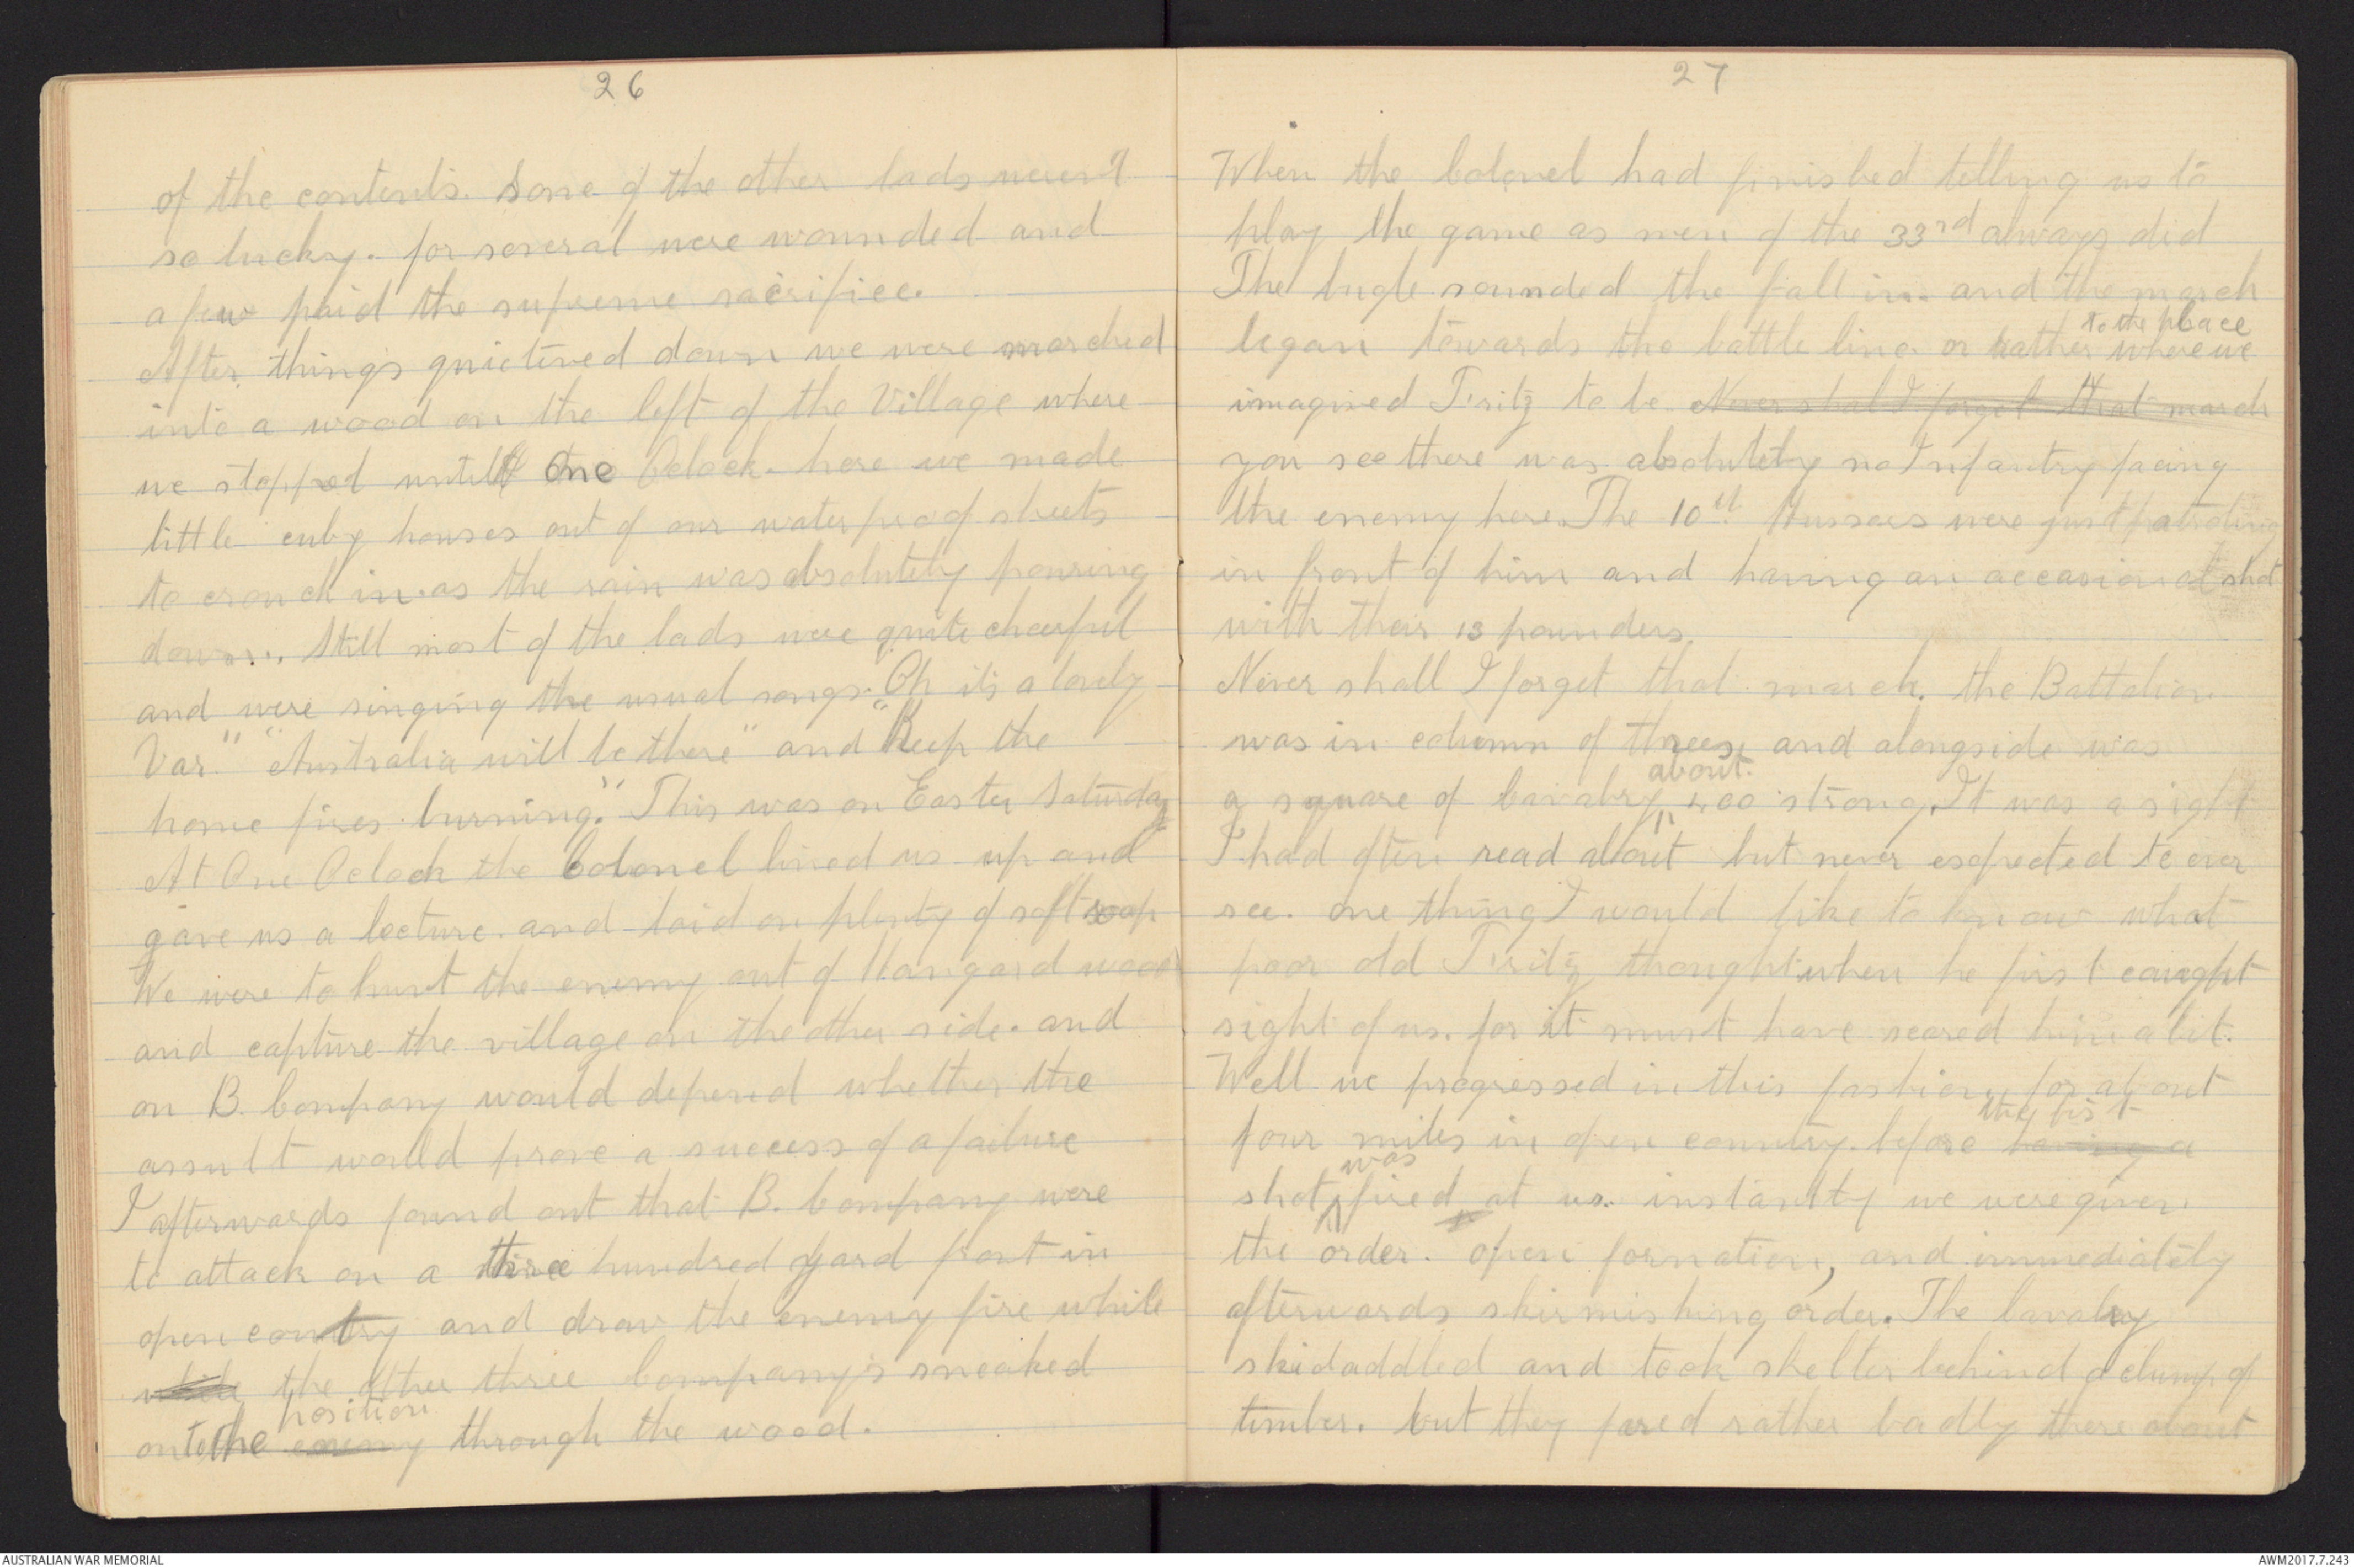 26
of the contents. Some of the other lads weren't
so lucky. for several were wounded and
a few paid the supreme sacrifice.
After things quietened down we were marched
into a wood on the left of the Village where
we stopped until One Oclock. here we made
little cuby houses out of our waterproof sheets
to crouch in. as the rain was absolutely pouring
down. Still most of the lads were quite cheerful
and were singing the usual songs. "Oh its a lovely
War" "Australia will be there" and "Keep the
home fires burning." This was on Easter Saturday
At One Oclock the Colonel lined us up and
gave us a lecture. and laid on plenty of soft soap
We were to hunt the enemy out of Hangard wood
and capture the village on the other side. and
on B. Company would depend whether the
assult would prove a success of a failure
I afterwards found out that B. Company were
to attack on a three hundred yard front in
open country and draw the enemy fire while
while the other three Company's sneaked
position
onto the enemy through the wood.
27
When the Colonel had finished telling us to
play the game as men of the 33rd always did
The bugle sounded the fall in. and the march
to the place
began towards the battle line or rather where we
imagined Fritz to be. Never shall I forget that march
you see there was absolutely no Infantry facing
the enemy here. The 10th Hussars were just patroling
in front of him and having an accasional shot
with their 13 pounders.
Never shall I forget that march. the Battalion
was in column of threes, and alongside was
about
a square of Cavalry 400 strong. It was a sight
I had often read about but never expected to ever
see. one thing I would like to know what
poor old Fritz thought when he first caught
sight of us. for it must have scared him a bit.
Well we progressed in this fashion for about
the first
four miles in open country. before having a
was
shot fired at us. instantly we were given
the order. open formation, and immediately
afterwards skirmishing order. The Cavalry
skidaddled and took shelter behind a clump of
timber. but they fared rather badly there about
AUSTRALIAN WAR MEMORIAL
AWM2017.7.243